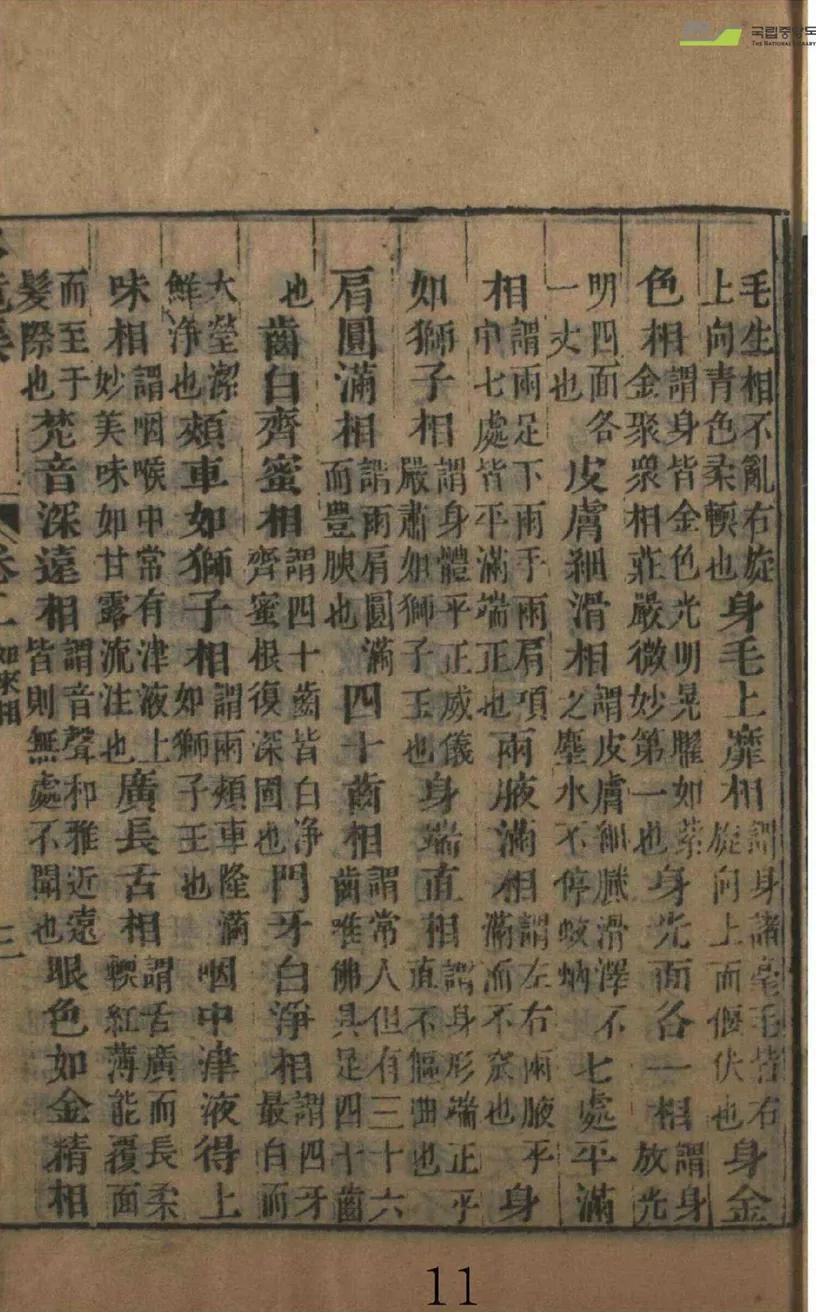 毛生相不亂右旋上向青色柔輭也身毛上靡相謂身諸毫毛皆右旋向上而偃伏也身金
色相謂身皆金色光明晃曜如紫金聚衆相莊嚴微妙第一也身光面各一相謂身放光
明四面各一丈也皮膚細滑相謂皮膚細膩滑澤不之塵水不停蚊蚋七處平滿
相謂兩足下兩手兩肩項中七處皆平滿端正也兩腋滿相謂左右兩腋平滿而不窊也身
如獅子相謂身體平正威儀嚴肅如獅子王也身端直相謂身形端正平直不傴曲也
肩圓滿相謂兩肩圓滿而豊腴也四十齒相謂常人但有三十六齒唯佛具足四十齒
也齒白齊蜜相謂四十齒皆白净齊蜜根復深固也門牙白淨相謂四牙最白而
大瑩潔鮮淨也頰車如獅子相謂兩頰車隆滿如獅子王也咽中津液得上
味相謂咽喉中常有津液上妙美味如甘露流注也廣長舌相謂舌廣而長柔輭紅薄能覆面
而至于髮際也梵音深遠相謂音聲和雅近遠皆則無處不聞也眼色如金精相
如來相
국립중앙도
THE NATIONAL LIBRARY
11